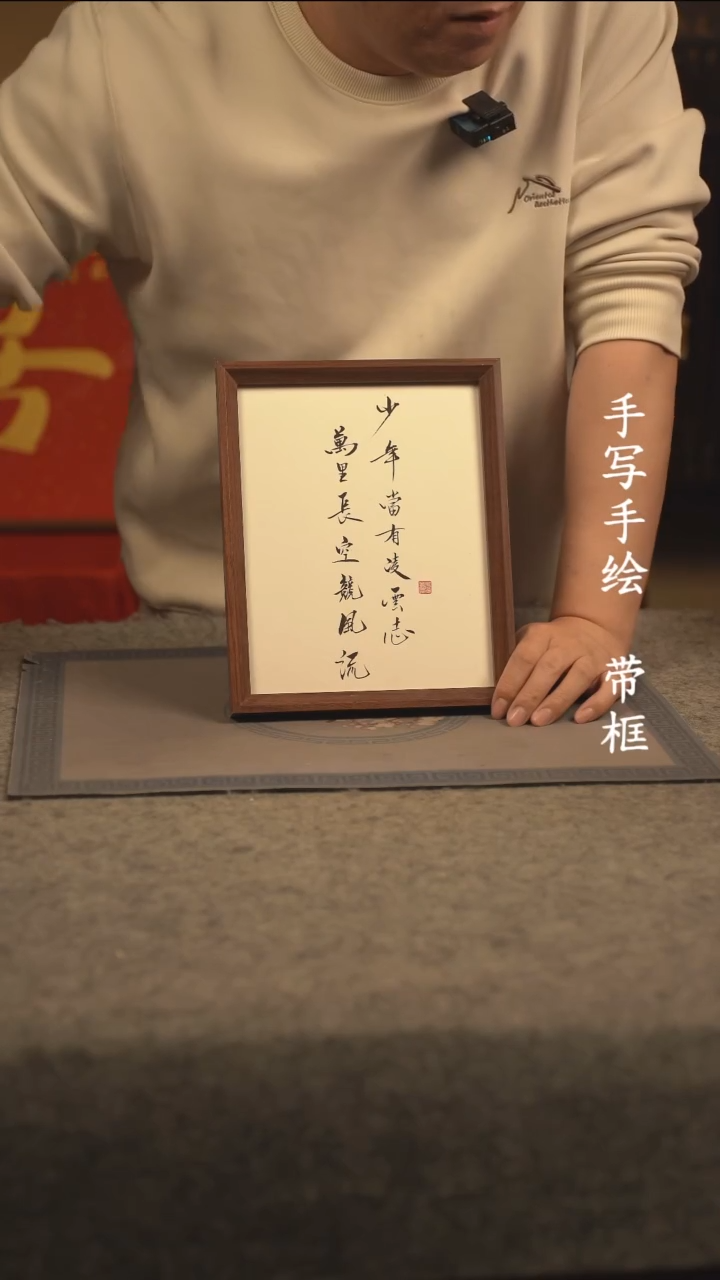 少年當有凌雲志
萬里長空競風流
手写手绘 带框
Oriental
Aesthetic